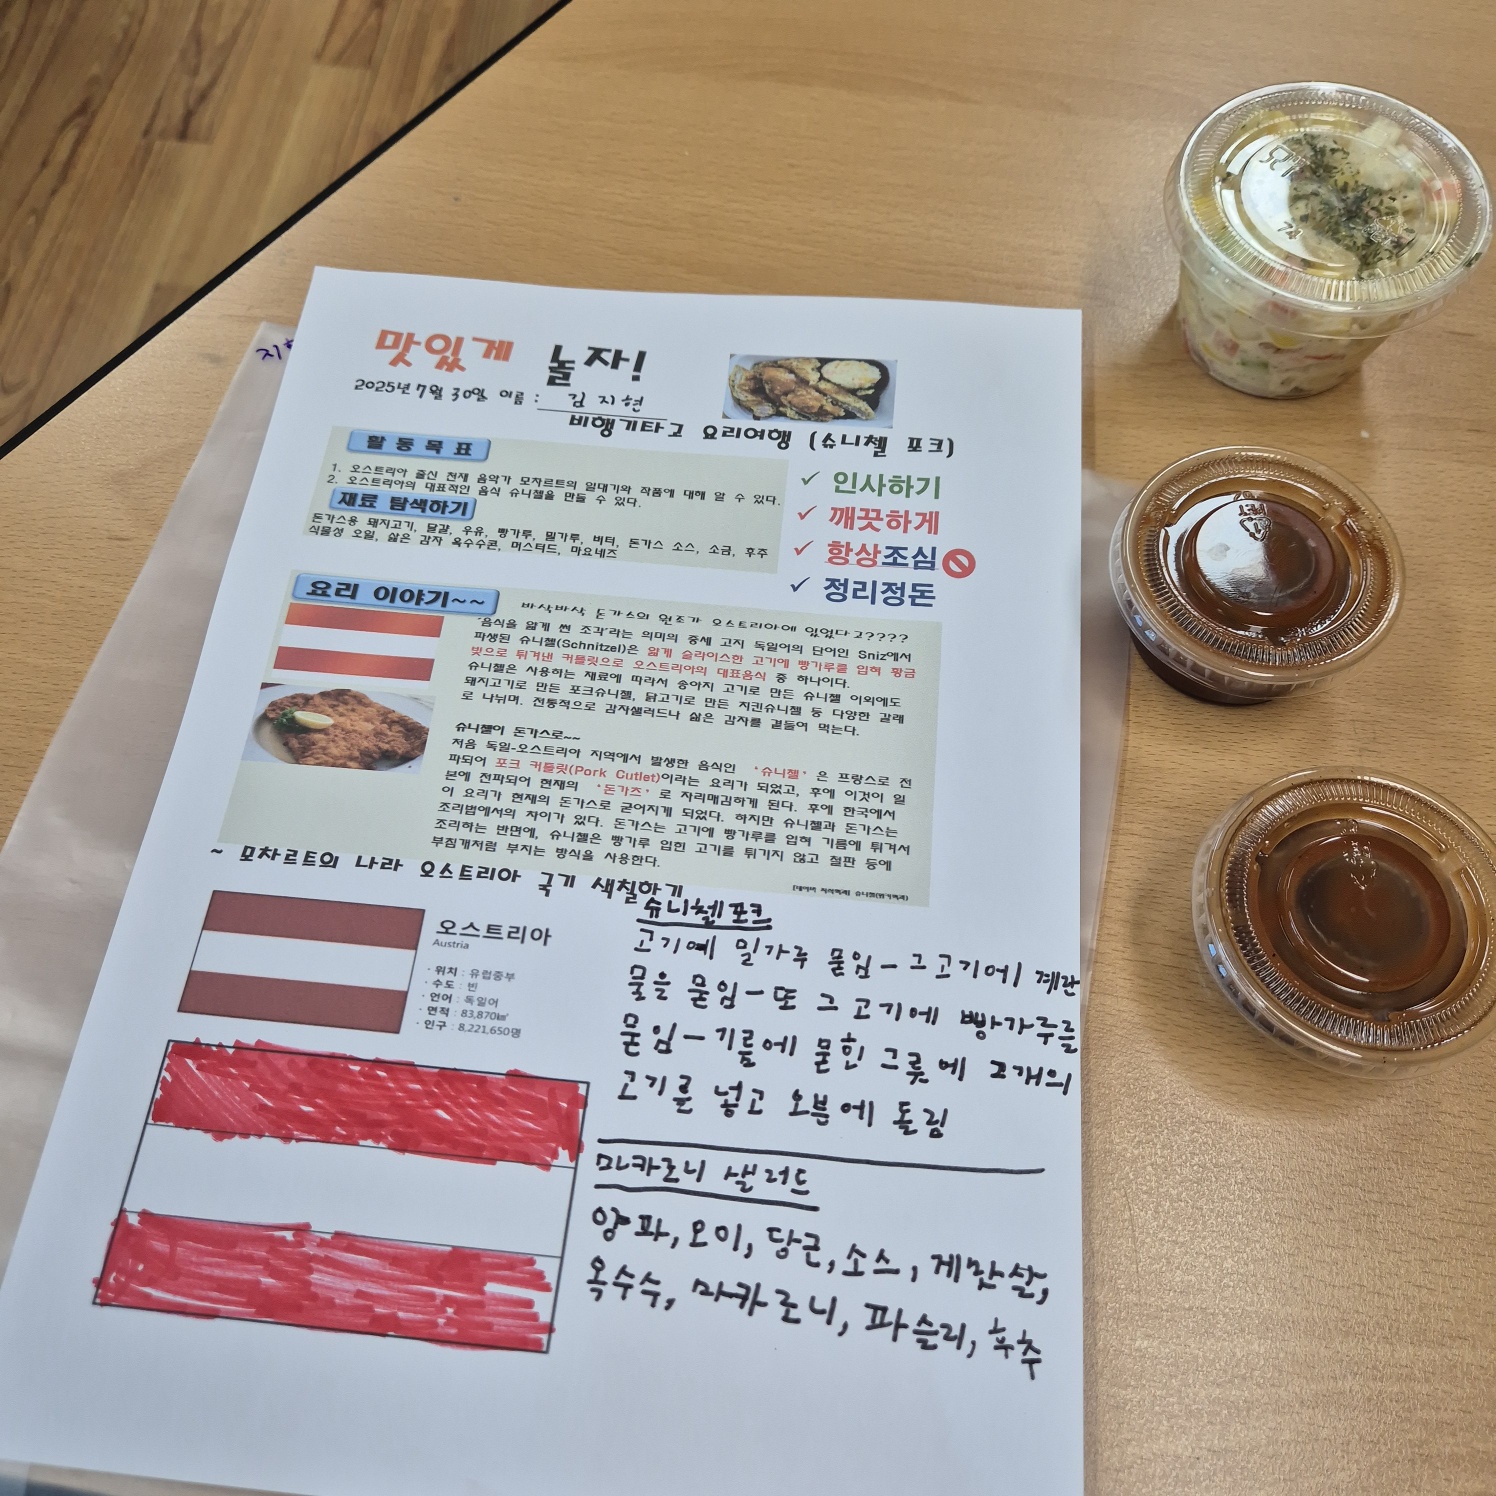 맛있게 놀자!
2025년 7월 30일 이름 : 김지현
비행기타고 요리여행 (슈니첼 포크)
활동목표
1. 오스트리아 출신 천재 음악가 모차르트의 일대기와 작품에 대해 알 수 있다.
2. 오스트리아의 대표적인 음식 슈니첼을 만들 수 있다.
재료 탐색하기
돈가스용 돼지고기, 달걀, 우유, 빵가루, 밀가루, 버터, 돈가스 소스, 소금, 후추
식물성 오일, 삶은 감자 옥수수콘, 머스터드, 마요네즈
✓ 인사하기
✓ 깨끗하게
✓ 항상조심
✓ 정리정돈
요리 이야기~~
바삭바삭 돈가스의 원조가 오스트리아에 있었다고?????
'음식을 얇게 썬 조각'라는 의미의 중세 고지 독일어의 단어인 Sniz에서
파생된 슈니첼(Schnitzel)은 얇게 슬라이스한 고기에 빵가루를 입혀 황금
빛으로 튀겨낸 커틀릿으로 오스트리아의 대표음식 중 하나이다.
슈니첼은 사용하는 재료에 따라서 송아지 고기로 만든 슈니첼 이외에도
돼지고기로 만든 포크슈니첼, 닭고기로 만든 치킨슈니첼 등 다양한 갈래
로 나뉘며, 전통적으로 감자샐러드나 삶은 감자를 곁들여 먹는다.
슈니첼이 돈가스로~~
처음 독일-오스트리아 지역에서 발생한 음식인 '슈니첼' 은 프랑스로 전
파되어 포크 커틀릿(Pork Cutlet)이라는 요리가 되었고, 후에 이것이 일
본에 전파되어 현재의 '돈가츠' 로 자리매김하게 된다. 후에 한국에서
이 요리가 현재의 돈가스로 굳어지게 되었다. 하지만 슈니첼과 돈가스는
조리법에서의 차이가 있다. 돈가스는 고기에 빵가루를 입혀 기름에 튀겨서
조리하는 반면에, 슈니첼은 빵가루 입힌 고기를 튀기지 않고 철판 등에
부침개처럼 부치는 방식을 사용한다.
[네이버 지식백과] 슈니첼(위키백과)
~ 모차르트의 나라 오스트리아 국기 색칠하기
오스트리아
Austria
· 위치 : 유럽중부
· 수도 : 빈
· 언어 : 독일어
· 면적 : 83,870㎢
· 인구 : 8,221,650명
슈니첼포크
고기에 밀가루 묻임-그고기에 계란
물을 묻임-또 그고기에 빵가루를
묻임-기름에 묻힌 그릇에 2개의
고기를 넣고 오븐에 돌림
마카로니 샐러드
양파, 오이, 당근, 소스, 게맛살,
옥수수, 마카로니, 파슬리, 후추
PET